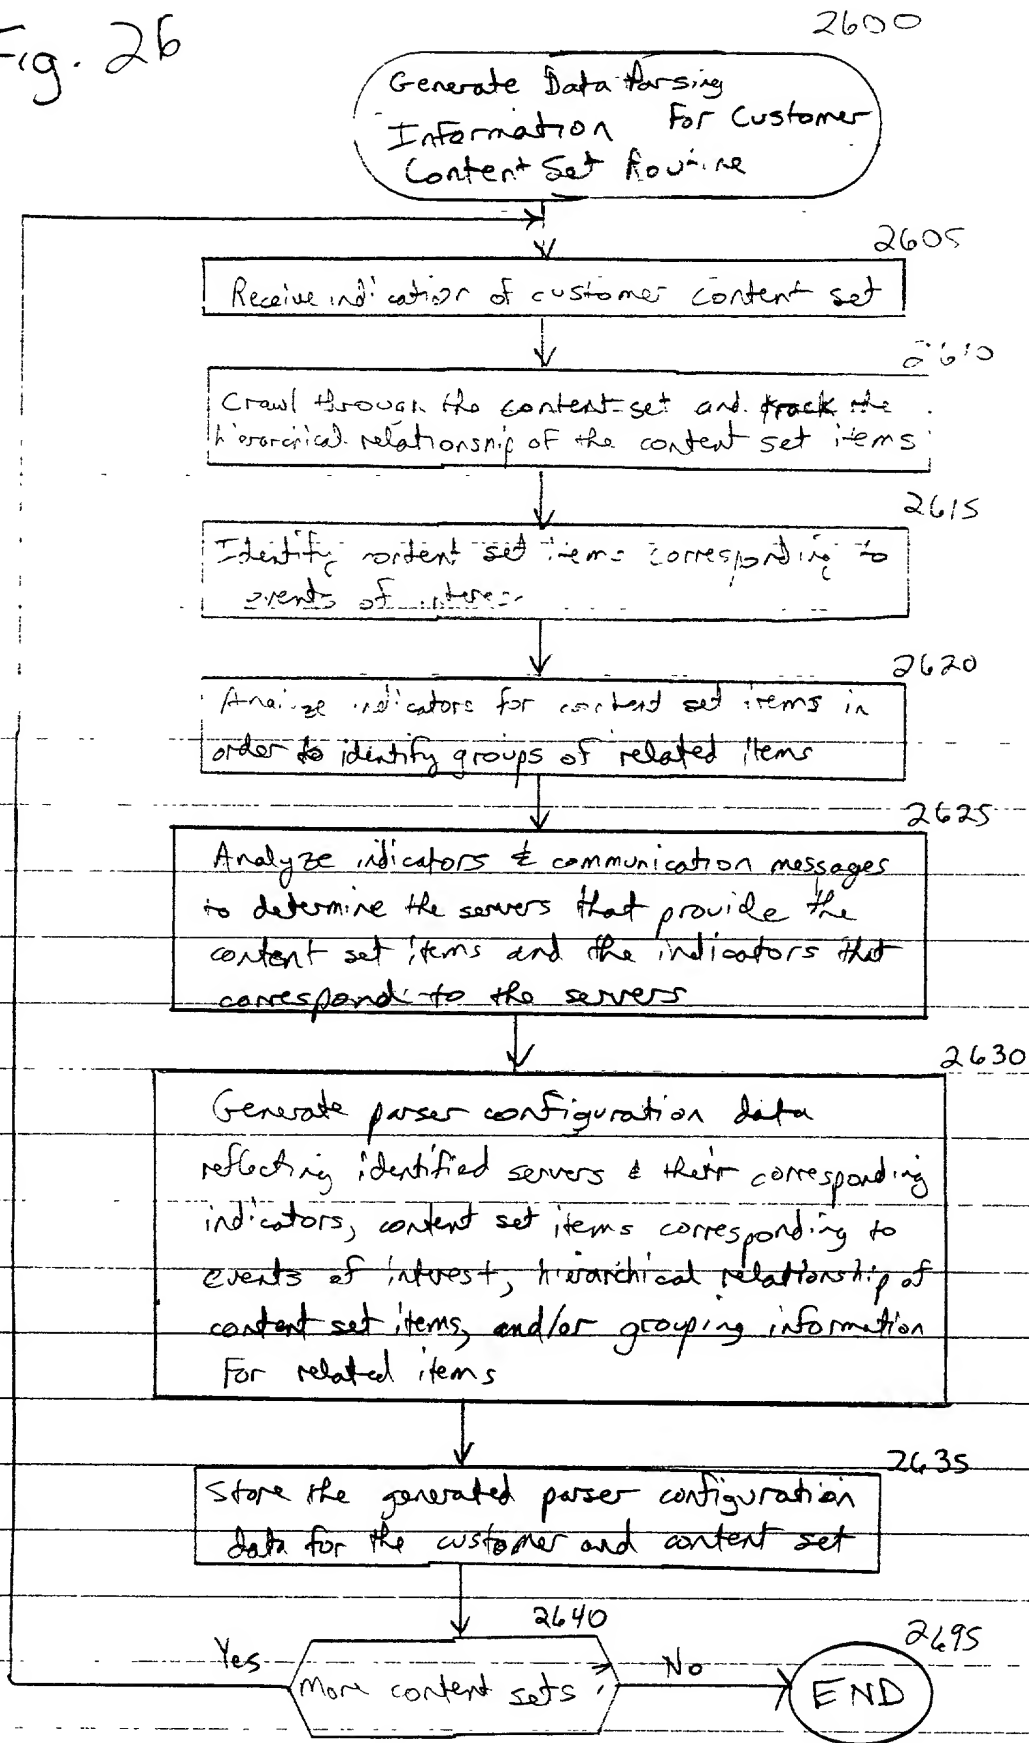 Fig. 26
2600
Generate Data Parsing
Information For Customer
Content Set Routine
2605
Receive indication of customer content set
2610
Crawl through the content set and track the
hierarchical relationship of the content set items
2615
Identify content set items corresponding to
events of interest
2620
Analyze indicators for content set items in
order to identify groups of related items
2625
Analyze indicators & communication messages
to determine the servers that provide the
content set items and the indicators that
correspond to the servers
2630
Generate parser configuration data
reflecting identified servers & their corresponding
indicators, content set items corresponding to
events of interest, hierarchical relationship of
content set items, and/or grouping information
For related items
2635
Store the generated parser configuration
data for the customer and content set
2640
Yes
More content sets ?
No
2695
END